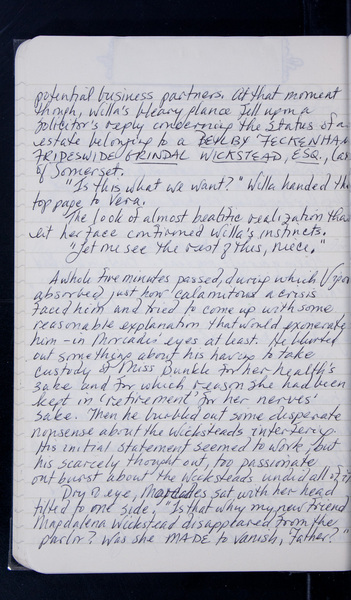 potential business partners. At that moment
though, Willa's bleary glance fell upon a
solicitor's reply concerning the status of a
estate belonging to a BEYLBY FECKENHAM
FRIDESWIDE GRINDAL WICKSTEAD, ESQ., (
of Somerset.
"Is this what we want?" Willa handed the
top page to Vera.
The look of almost beatific realization tha
eat her face confirmed Willa's instincts.
"Let me see the rest of this, niece."
A whole five minutes passed, during which
absorbed just how calamitous a crisis
faced him and tried to come up with some
reasonable explanation that would exonerate
him – in Mercades' eyes at least. He blurted
out something about his having to take
custody of Miss Dunkle for her health's
sake and for which reason she had been
kept in 'retirement' for her nerves'
sake. Then he burbled out some desperate
nonsense about the Wicksteads interfering.
His initial statement seemed to work, but
his scarcely thought out, too passionate
outburst about the Wicksteads undid all of it
Dry eye, Mercades sat with her head
tilted to one side. "Is that why my new friend
Magdalena Wickstead disappeared from the
parlor? Was she MADE to vanish, Father?"